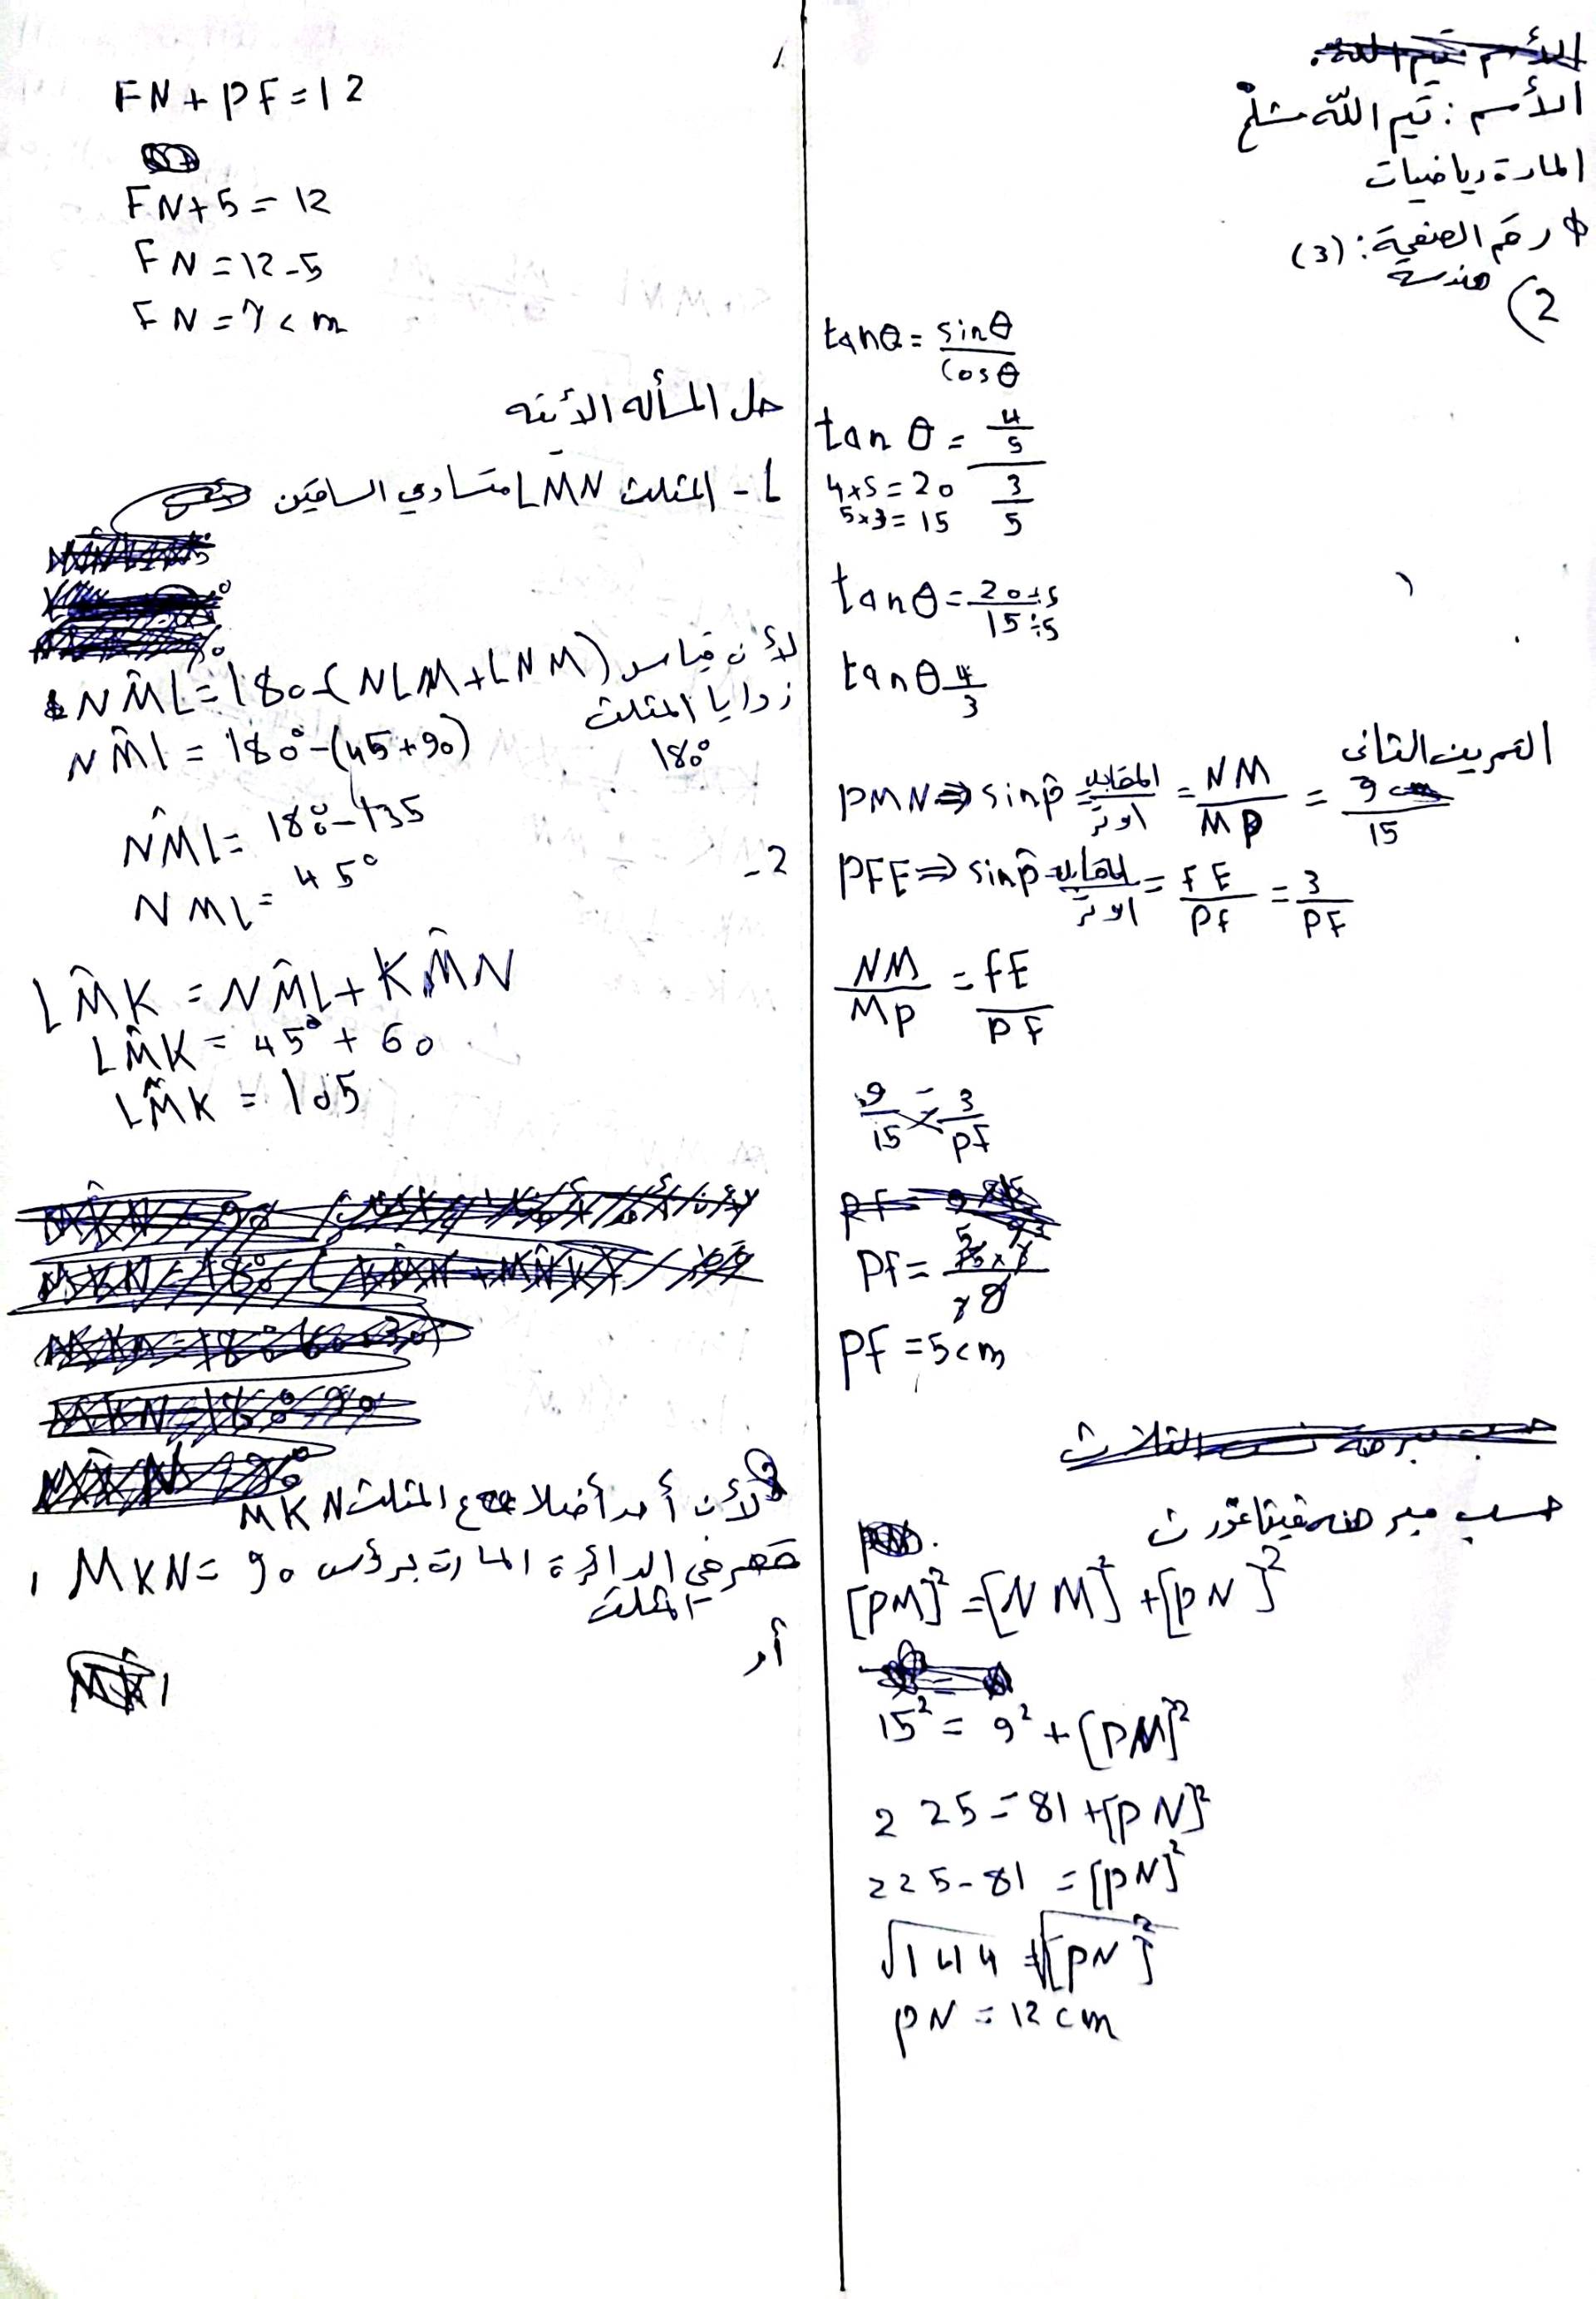 الأسم : تيم الله مشلح
المادة رياضيات
رقم الصفحة : (3)
هندسة
(2
tanθ = sinθ / cosθ
tan θ = 4/5 / 3/5
4×5=20
5×3=15
tanθ = 20÷5 / 15÷5
tanθ 4/3
التمرين الثاني
PMN ⇒ sin p̂ = المقابل / الوتر = NM / MP = 9 / 15
PFE ⇒ sin p̂ = المقابل / الوتر = FE / PF = 3 / PF
NM / MP = FE / PF
9/15 = 3/PF
PF = 15×3 / 9
PF = 5cm
حسب مبرهنة فيتاغورث
[PM]² = [NM]² + [PN]²
15² = 9² + [PM]²
225 = 81 + [PN]²
225-81 = [PN]²
√144 = √[PN]²
PN = 12 cm
FN + PF = 12
FN + 5 = 12
FN = 12-5
FN = 7cm
حل المسأله الأتيه
1- المثلث LMN متساوي الساقين
NM̂L = 180-(NLM+LNM) لأن قياس
زوايا المثلث
180°
NM̂L = 180°-(45+90)
NM̂L = 180-135
NML = 45°
2-
LM̂K = NM̂L + KM̂N
LM̂K = 45° + 60
LM̂K = 105
لأن أحد أضلاع المثلث MKN
قطر في الدائرة المارة برؤس MKN = 90
المثلث
أو